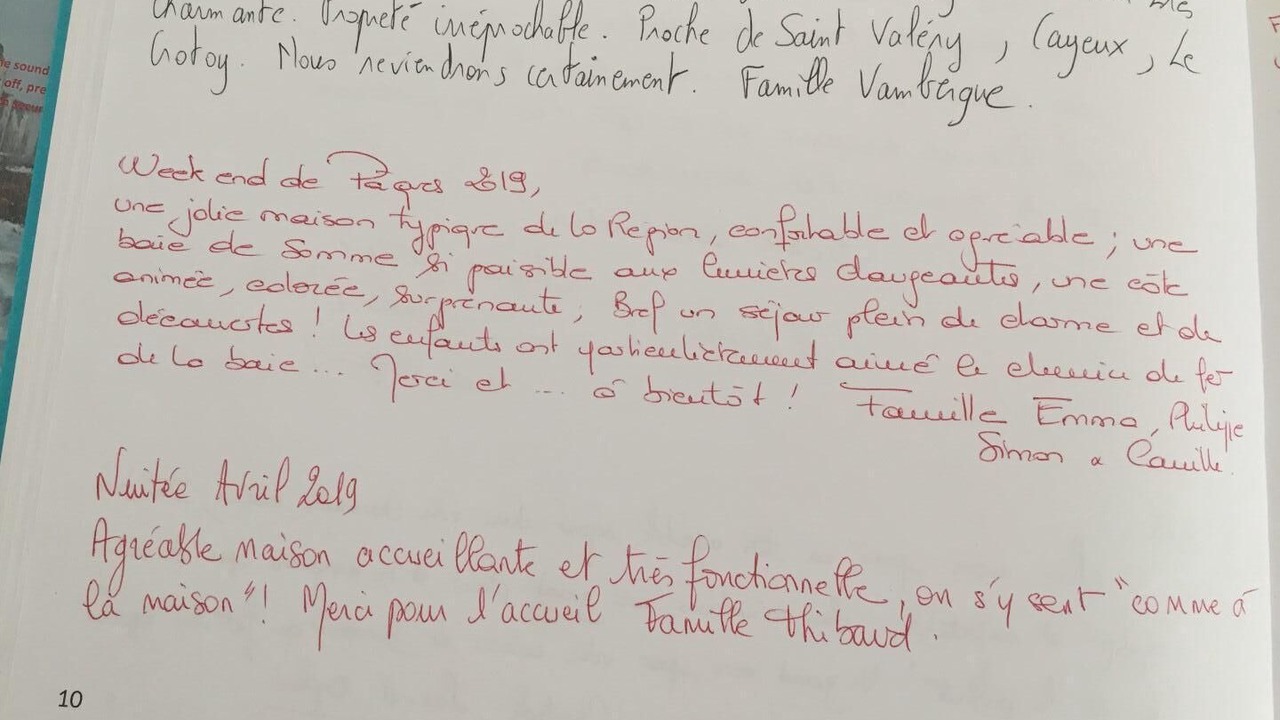 charmante. Propreté irréprochable. Proche de Saint Valéry, Cayeux, Le
Crotoy. Nous reviendrons certainement. Famille Vambergue.
Week end de Pâques 2019,
une jolie maison typique de la Region, confortable et agréable ; une
baie de Somme si paisible aux lumières changeantes, une côte
animée, colorée, surprenante, Bref un séjour plein de charme et de
découvertes ! Les enfants ont particulièrement aimé le chemin de fer
de la baie ... Merci et ... à bientôt ! Famille Emma, Philippe
Simon & Camille.
Nuitée Avril 2019
Agréable maison accueillante et très fonctionnelle, on s'y sent "comme à
la maison"! Merci pour l'accueil Famille Thibaud.
10
e sound
off, pre